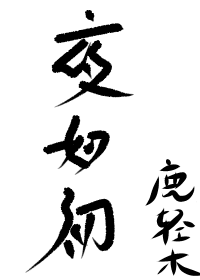 夜如初
鹿轻木